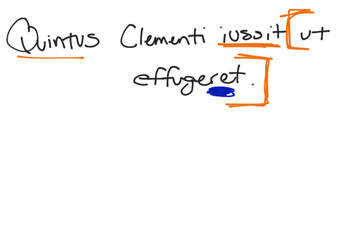 Quintus Clementi iussit [ut
effugeret.]